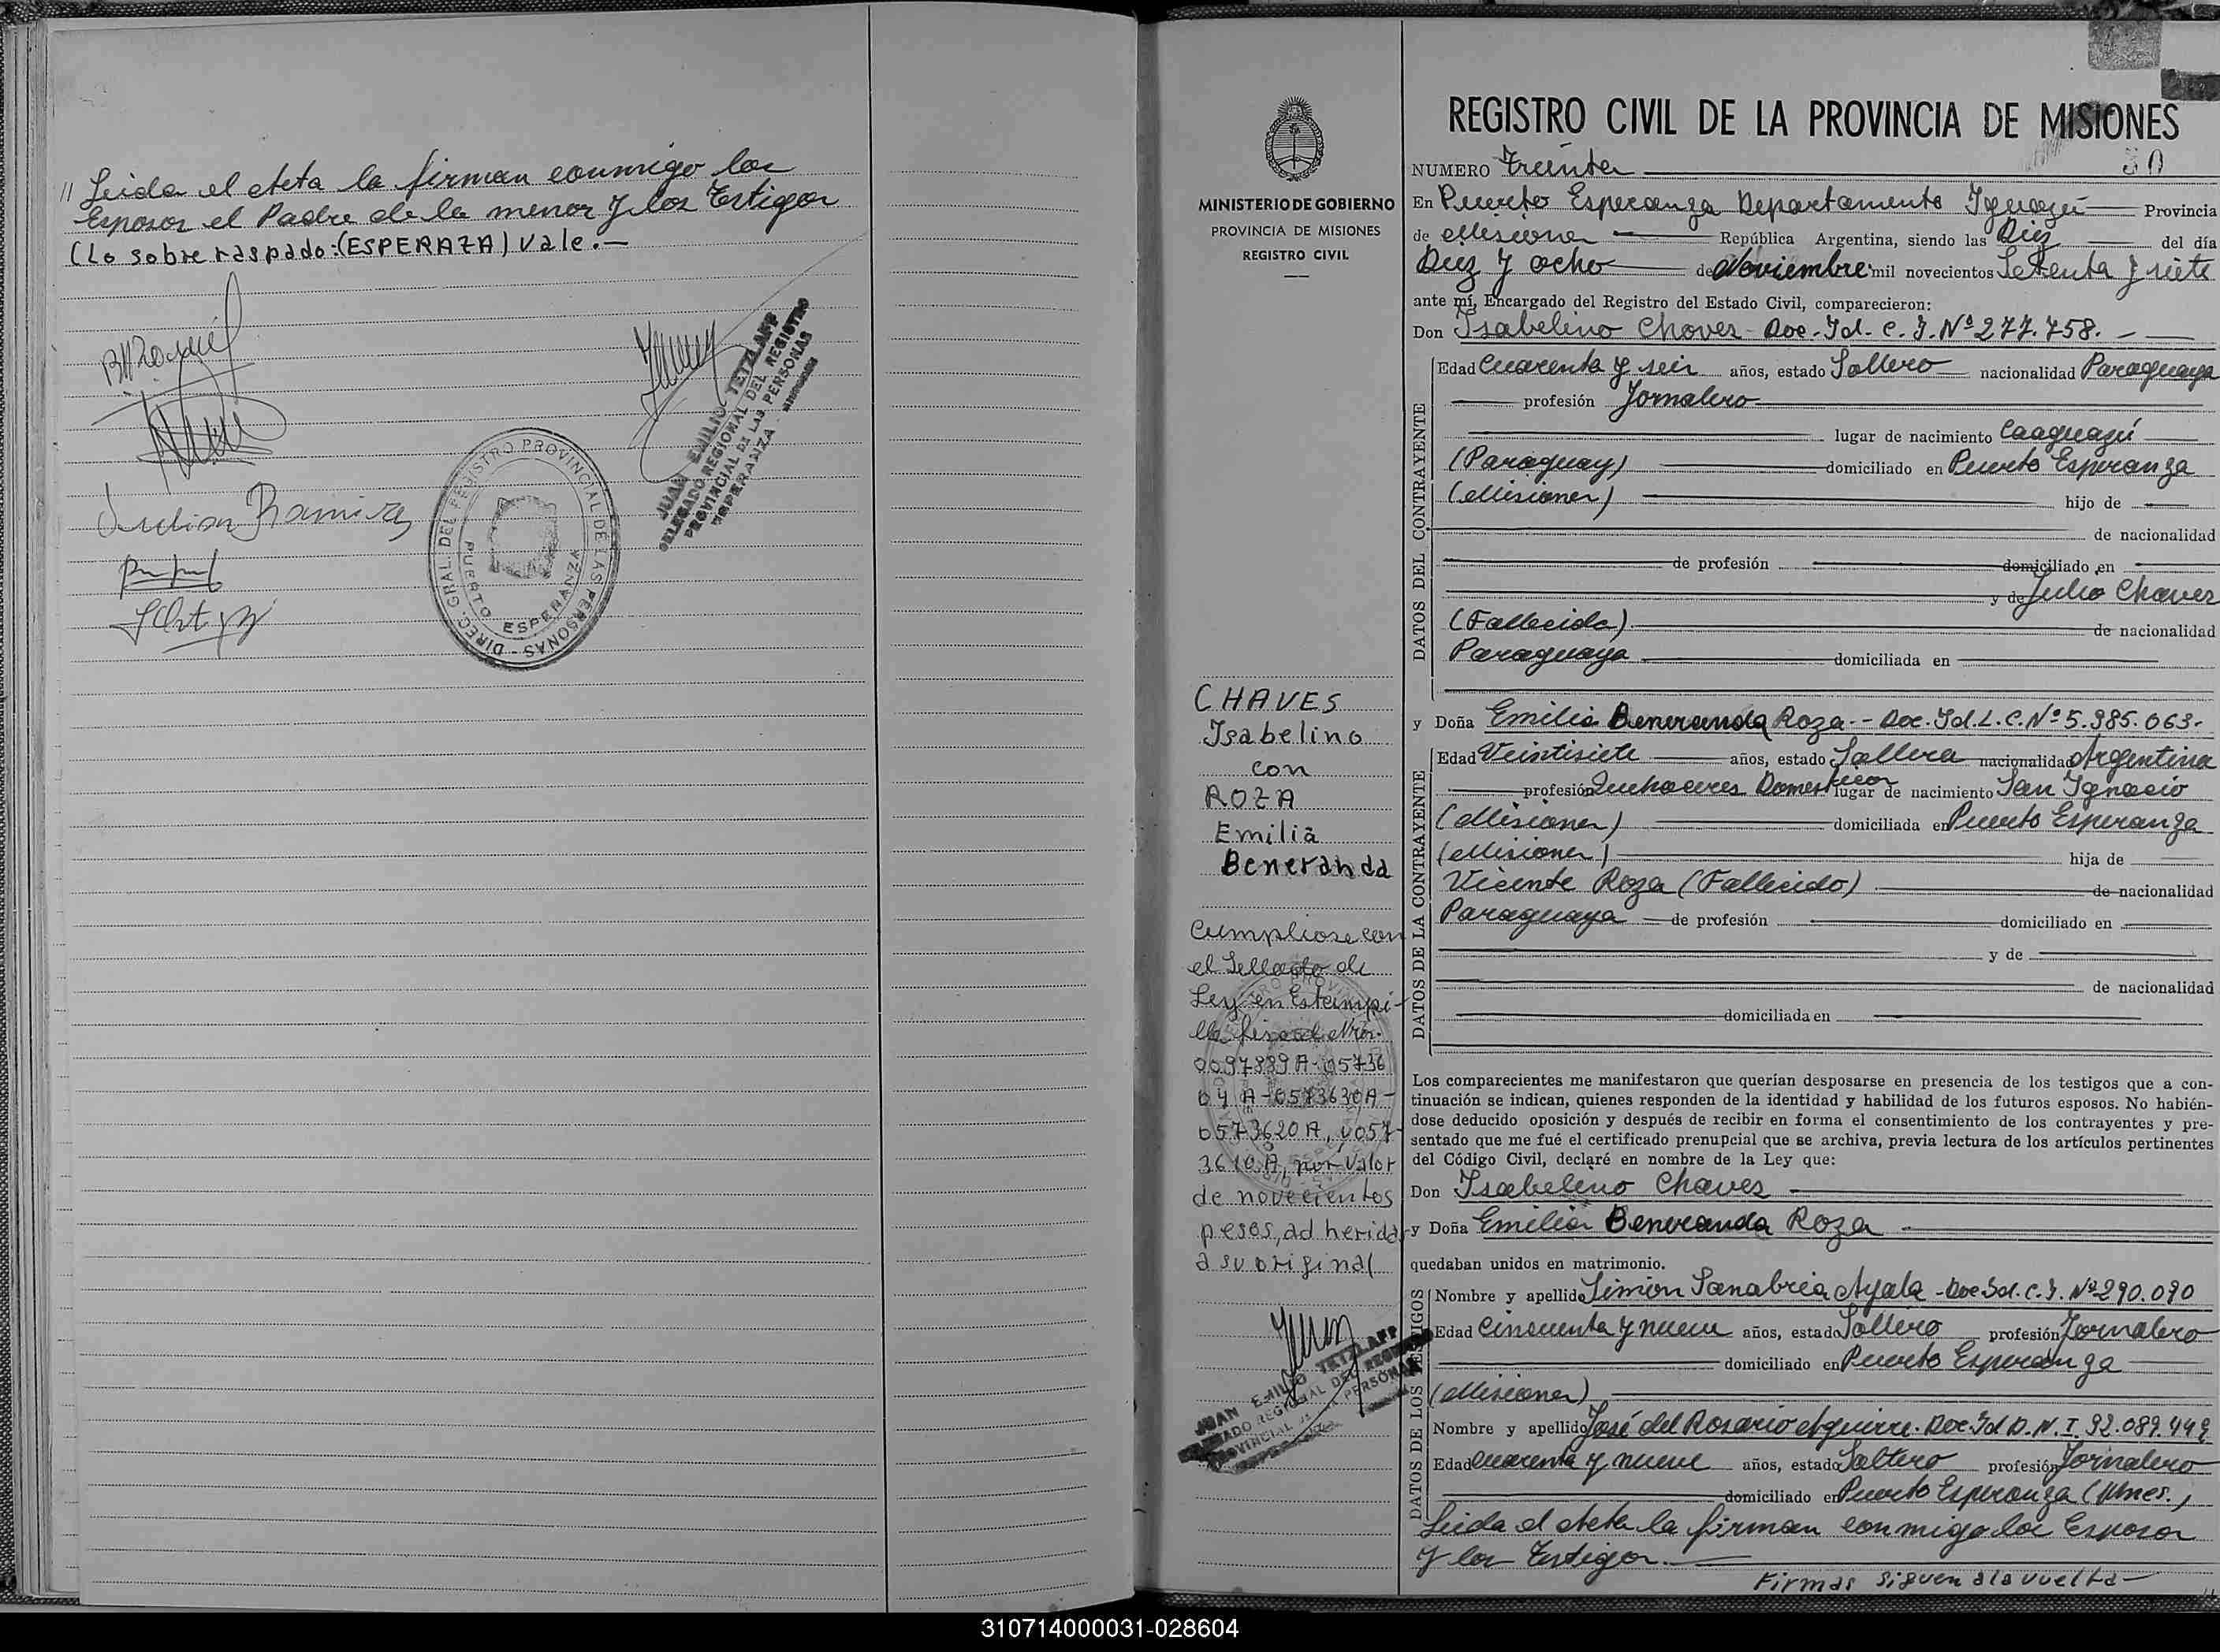 // Leida el Acta la firman conmigo los
Esposos el Padre de la menor y los Testigos
(Lo sobre raspado:(ESPERAZA) Vale.—
Julian Ramirez
JUAN EMILIO TETZLAFF
DELEGADO REGIONAL DEL REGISTRO
PROVINCIAL DE LAS PERSONAS
ESPERANZA
DIREC. GRAL. DEL REGISTRO PROVINCIAL DE LAS PERSONAS
PUERTO ESPERANZA
MINISTERIO DE GOBIERNO
PROVINCIA DE MISIONES
REGISTRO CIVIL
CHAVES
Isabelino
con
ROZA
Emilia
Beneranda
Cumpliose con
el Sellado de
Ley en Estampi-
lla fiscal Nros.
0097889A-05736
04A-0573630A-
0573620A, y 057
3610A, por valor
de novecientos
pesos, adheridas
a su original
JUAN EMILIO TETZLAFF
REGISTRO CIVIL DE LA PROVINCIA DE MISIONES
NUMERO Treinta 30
En Puerto Esperanza Departamento Iguazú Provincia
de Misiones República Argentina, siendo las Diez del día
Diez y ocho de Noviembre mil novecientos Setenta y siete
ante mí, Encargado del Registro del Estado Civil, comparecieron:
Don Isabelino Chaves - Doc. Id. C. I. Nº 277.758.-
DATOS DEL CONTRAYENTE
Edad Cuarenta y seis años, estado Soltero nacionalidad Paraguaya
profesión Jornalero
lugar de nacimiento Caaguazú
(Paraguay) domiciliado en Puerto Esperanza
(Misiones) hijo de
de nacionalidad
de profesión domiciliado en
y de Julia Chaves
(Fallecida) de nacionalidad
Paraguaya domiciliada en
y Doña Emilia Beneranda Roza.- Doc. Id. L. C. Nº 5.985.063.
DATOS DE LA CONTRAYENTE
Edad Veintisiete años, estado Soltera nacionalidad Argentina
profesión Quehaceres Domesticos lugar de nacimiento San Ignacio
(Misiones) domiciliada en Puerto Esperanza
(Misiones) hija de
Vicente Roza (Fallecido) de nacionalidad
Paraguaya de profesión domiciliado en
y de
de nacionalidad
domiciliada en
Los comparecientes me manifestaron que querían desposarse en presencia de los testigos que a con-
tinuación se indican, quienes responden de la identidad y habilidad de los futuros esposos. No habién-
dose deducido oposición y después de recibir en forma el consentimiento de los contrayentes y pre-
sentado que me fué el certificado prenupcial que se archiva, previa lectura de los artículos pertinentes
del Código Civil, declaré en nombre de la Ley que:
Don Isabelino Chaves
y Doña Emilia Beneranda Roza
quedaban unidos en matrimonio.
DATOS DE LOS TESTIGOS
Nombre y apellido Simión Sanabria Ayala - Doc Id. C. I. Nº 290.090
Edad Cincuenta y nueve años, estado Soltero profesión Jornalero
domiciliado en Puerto Esperanza
(Misiones)
Nombre y apellido José del Rosario Aguirre. Doc. Id D. N. I. 92.089.449
Edad Cuarenta y nueve años, estado Soltero profesión Jornalero
domiciliado en Puerto Esperanza (Mnes.)
Leida el Acta la firman conmigo los Esposos
y los Testigos.
Firmas siguen a la vuelta—
310714000031-028604